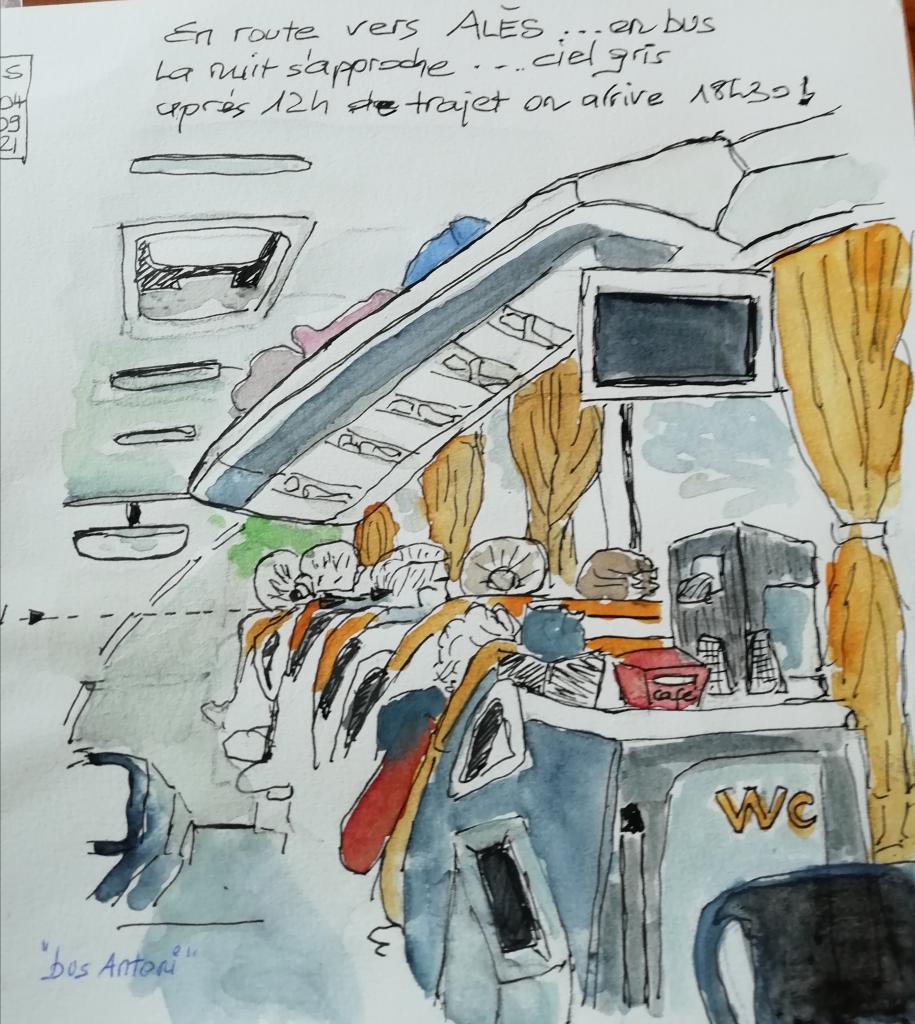 En route vers ALÈS ... en bus
La nuit s'approche ... ciel gris
après 12h de trajet on arrive 18h30!
S
04
09
21
café
WC
"bus Antoni"